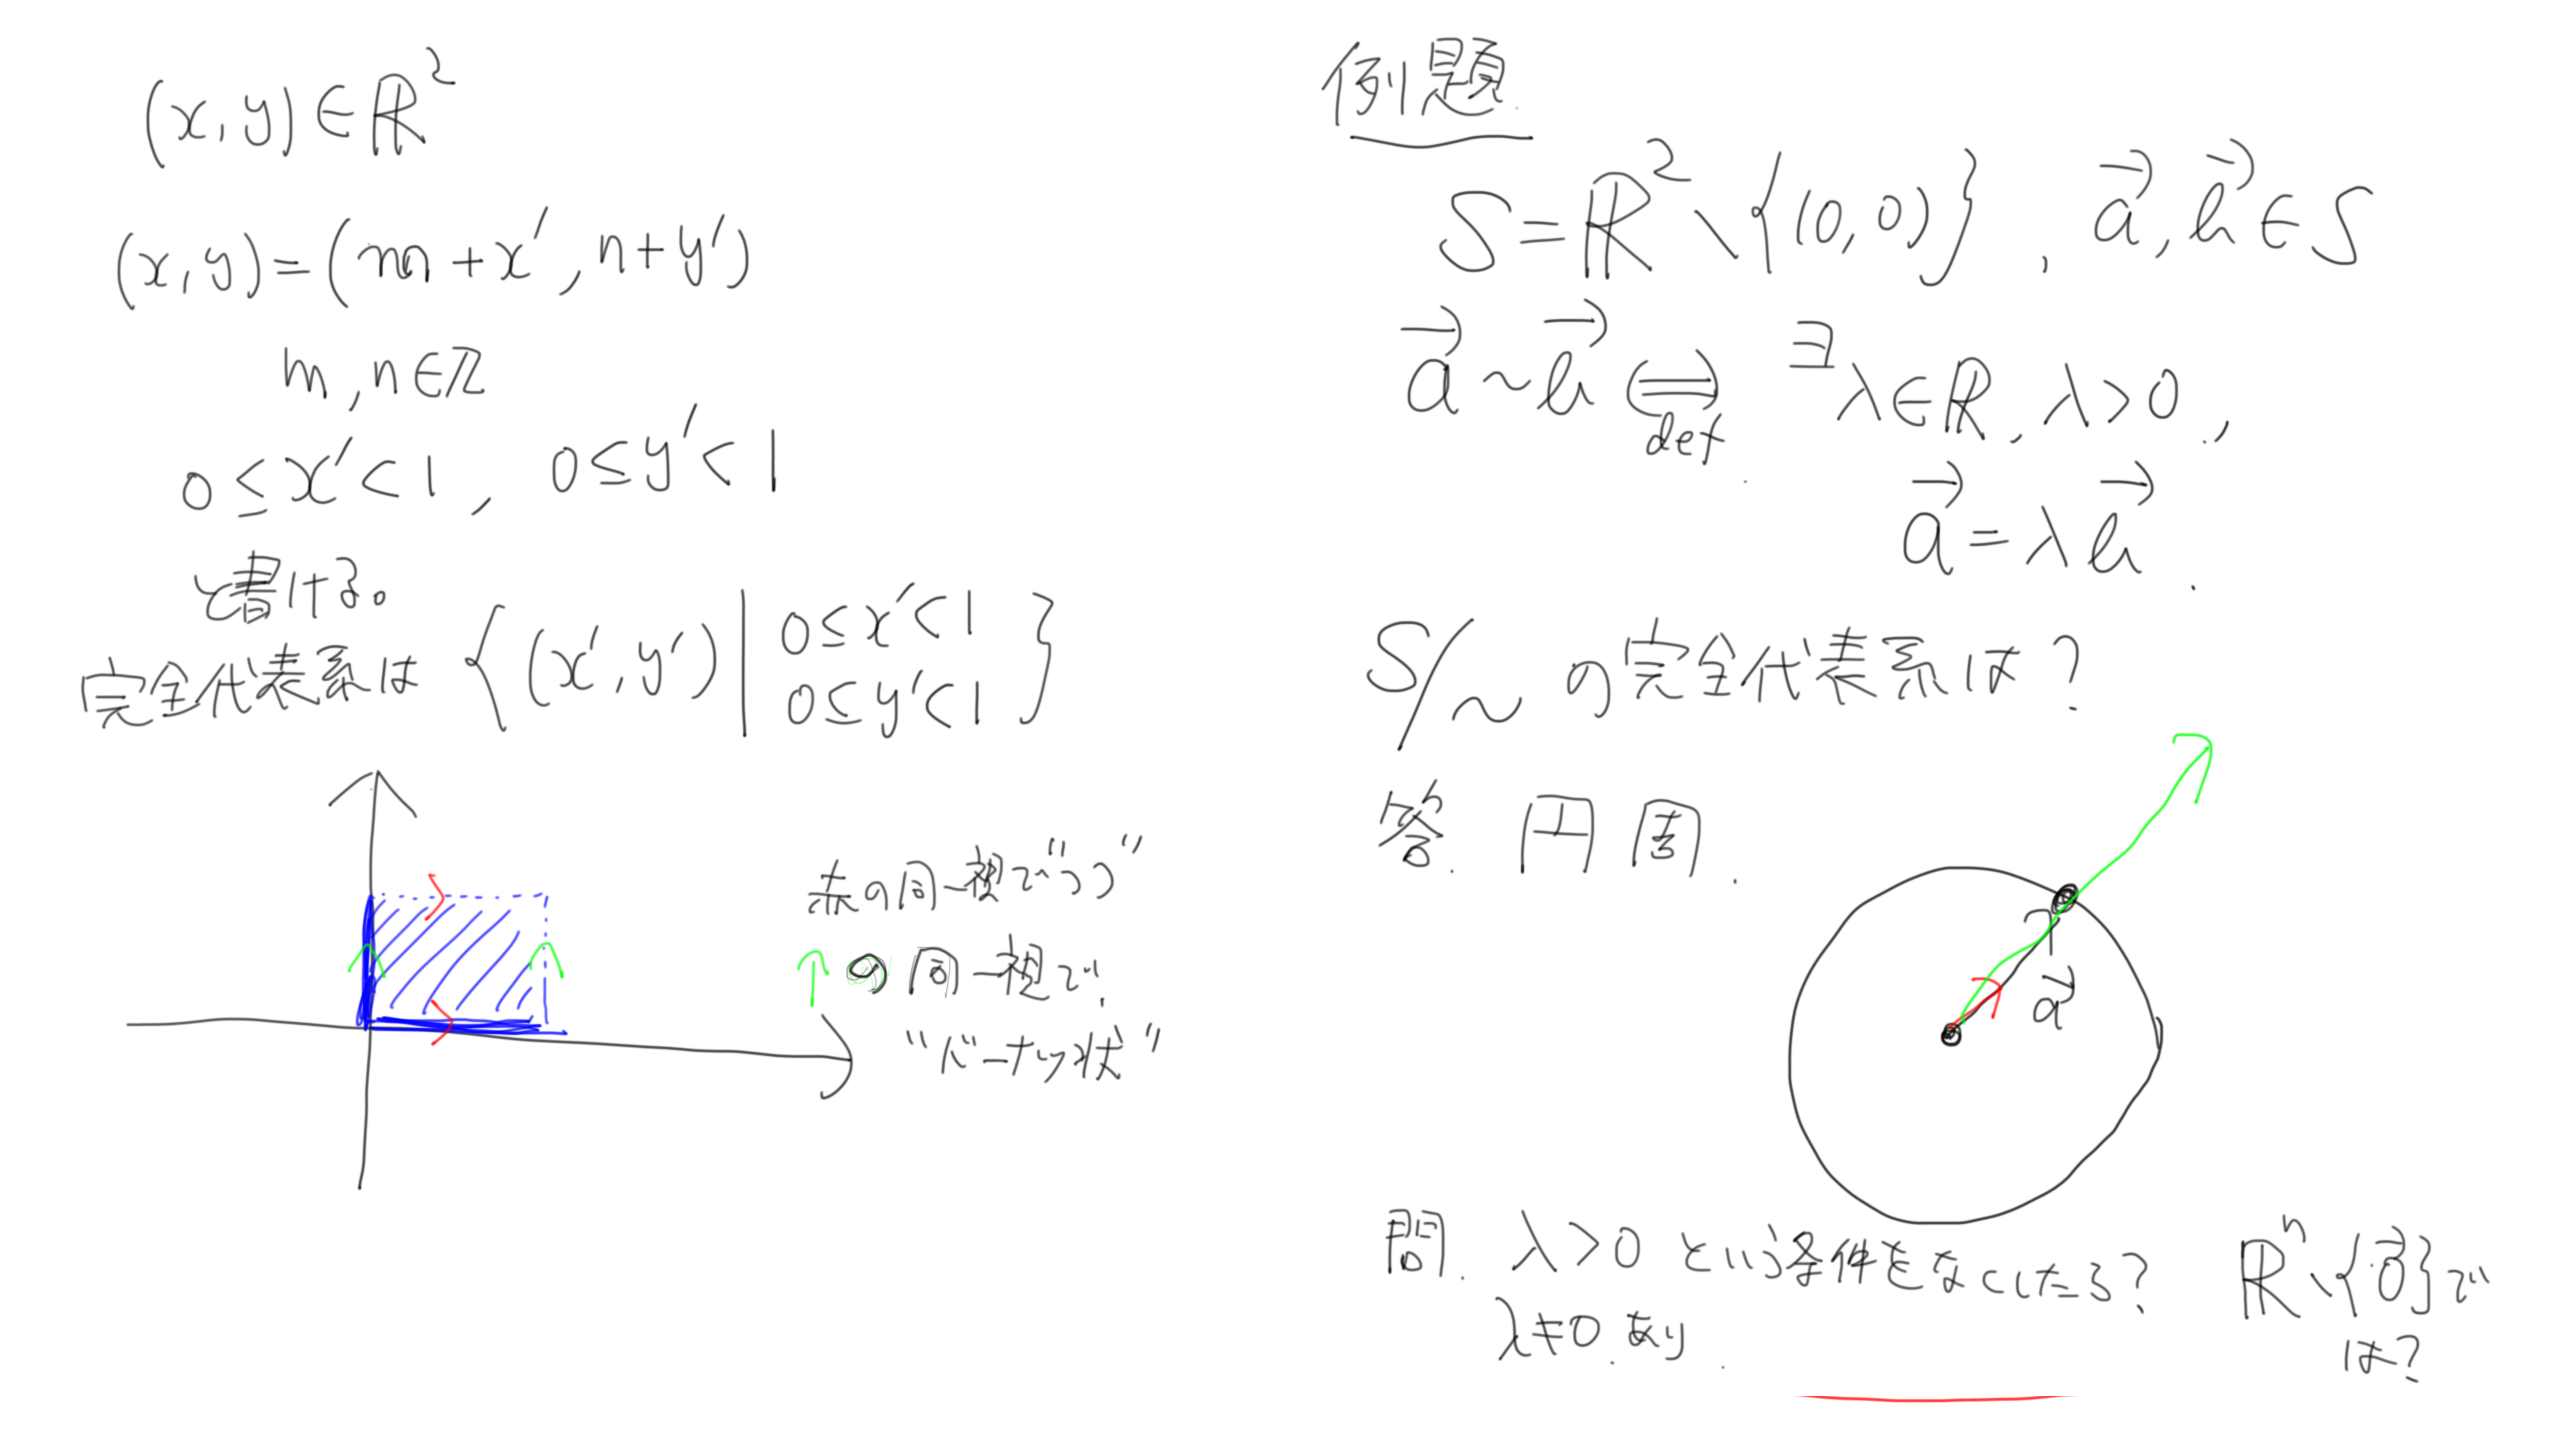 (x, y) ∈ ℝ²
(x, y) = (m + x′, n + y′)
m, n ∈ ℤ
0 ≤ x′ < 1, 0 ≤ y′ < 1
と書ける。
完全代表系は { (x′, y′) | 0 ≤ x′ < 1
0 ≤ y′ < 1 }
赤の同一視で"つつ"
↑の同一視で
"ドーナツ状"
例題
S = ℝ² \ {(0, 0)}, a⃗, b⃗ ∈ S
a⃗ ~ b⃗ ⇔ ∃λ ∈ ℝ, λ > 0,
def.
a⃗ = λb⃗.
S/~ の完全代表系は?
答. 円周.
a⃗
問. λ > 0 という条件をなくしたら? ℝⁿ \ {0⃗} で
λ ≠ 0 あり.
は?